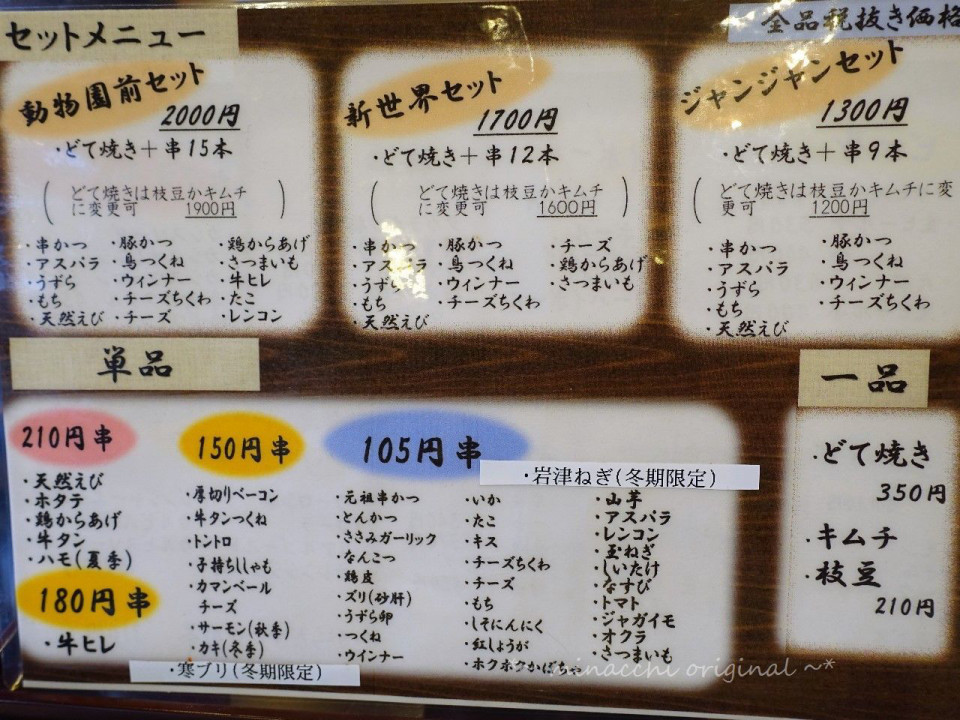 セットメニュー
全品税抜き価格
動物園前セット
2000円
・どて焼き＋串15本
(どて焼きは枝豆かキムチ
に変更可 1900円)
・串かつ ・豚かつ ・鶏からあげ
・アスパラ ・鳥つくね ・さつまいも
・うずら ・ウィンナー ・牛ヒレ
・もち ・チーズちくわ ・たこ
・天然えび ・チーズ ・レンコン
新世界セット
1700円
・どて焼き＋串12本
(どて焼きは枝豆かキムチ
に変更可 1600円)
・串かつ ・豚かつ ・チーズ
・アスパラ ・鳥つくね ・鶏からあげ
・うずら ・ウィンナー ・さつまいも
・もち ・チーズちくわ
・天然えび
ジャンジャンセット
1300円
・どて焼き＋串9本
(どて焼きは枝豆かキムチに変
更可 1200円)
・串かつ ・豚かつ
・アスパラ ・鳥つくね
・うずら ・ウィンナー
・もち ・チーズちくわ
・天然えび
単品
210円串
・天然えび
・ホタテ
・鶏からあげ
・牛タン
・ハモ(夏季)
180円串
・牛ヒレ
150円串
・厚切りベーコン
・牛タンつくね
・トントロ
・子持ちししゃも
・カマンベール
チーズ
・サーモン(秋季)
・カキ(冬季)
・寒ブリ(冬期限定)
105円串
・岩津ねぎ(冬期限定)
・元祖串かつ
・とんかつ
・ささみガーリック
・なんこつ
・鶏皮
・ズリ(砂肝)
・うずら卵
・つくね
・ウインナー
・いか
・たこ
・キス
・チーズちくわ
・チーズ
・もち
・しそにんにく
・紅しょうが
・ホクホクかぼちゃ
・山芋
・アスパラ
・レンコン
・玉ねぎ
・しいたけ
・なすび
・トマト
・ジャガイモ
・オクラ
・さつまいも
一品
・どて焼き
350円
・キムチ
・枝豆
210円
minacchi original ~*